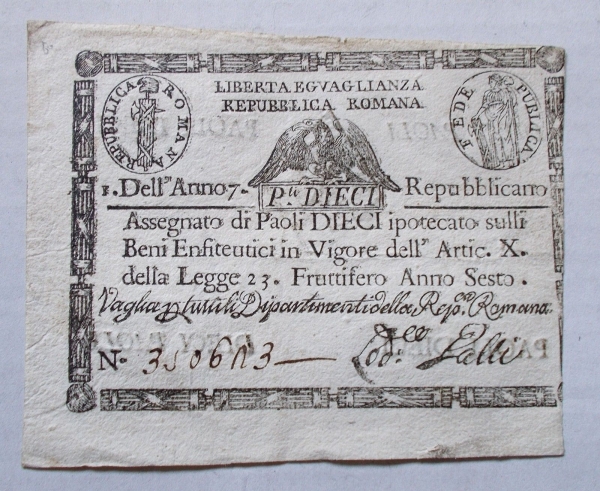 LIBERTA EGVAGLIANZA
REPUBBLICA ROMANA
REPUBBLICA ROMANA
FEDE PUBLICA
Dell' Anno 7. Repubblicano
P.li DIECI
Assegnato di Paoli DIECI ipotecato sulli
Beni Enfiteutici in Vigore dell' Artic. X.
della Legge 23. Fruttifero Anno Sesto.
Vaglia p tutti li Dipartimenti della Rep. Romana
N.